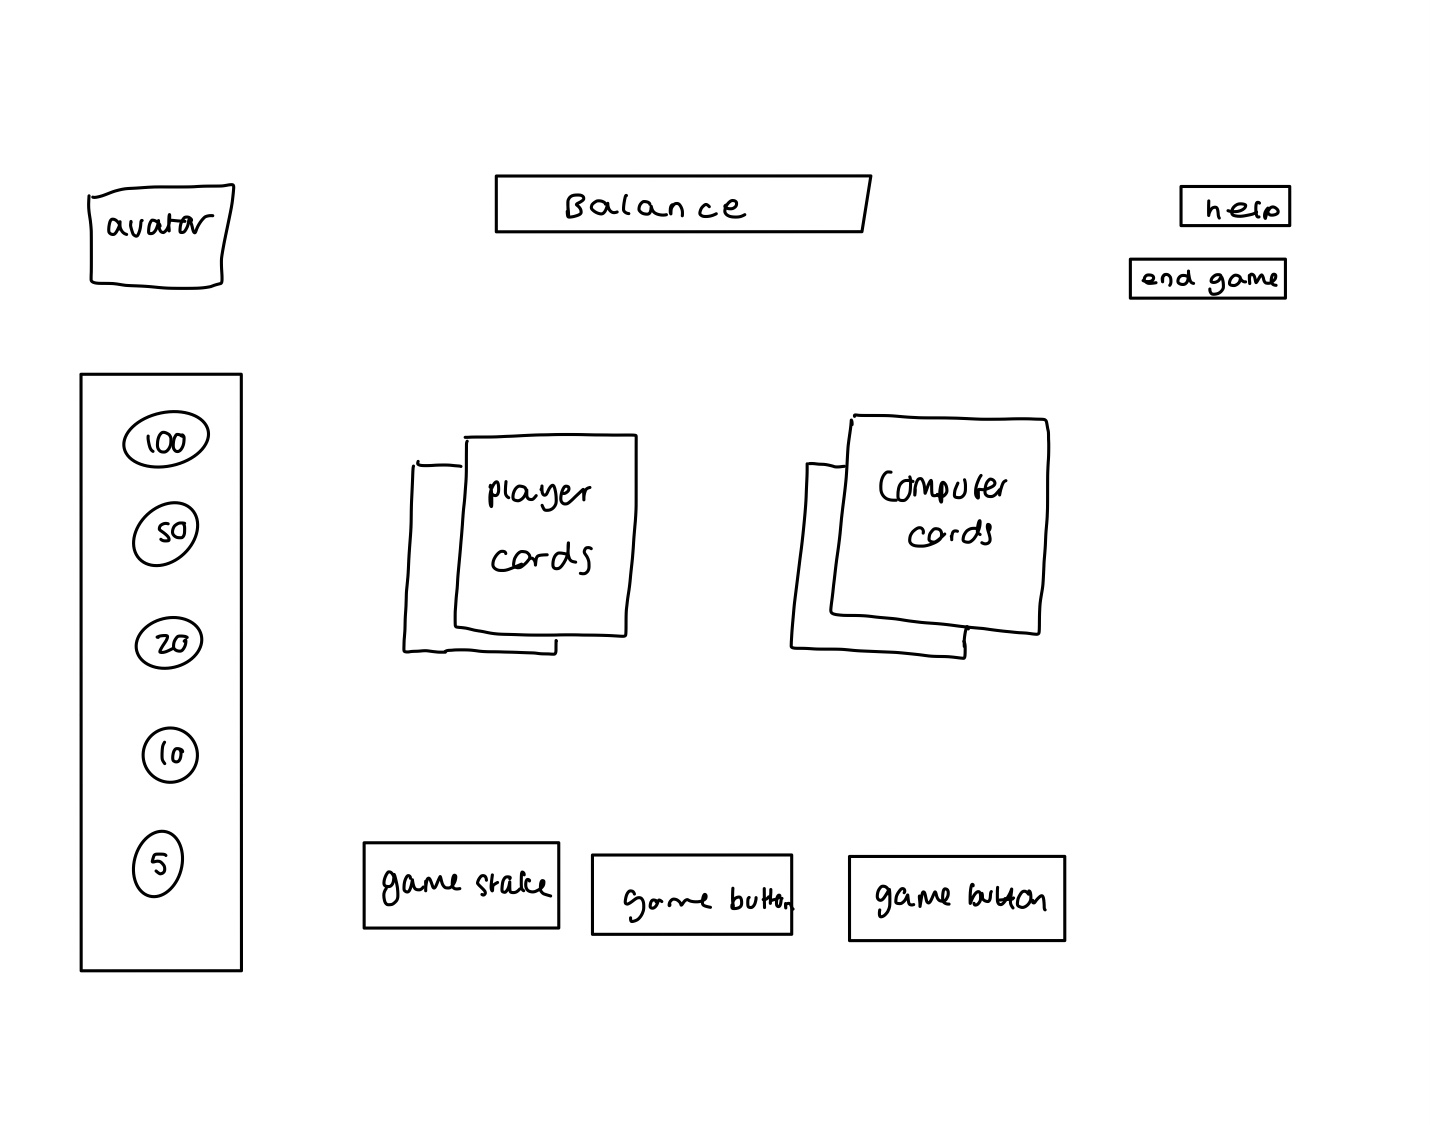 avatar
Balance
help
end game
100
50
20
10
5
player
cards
Computer
cards
game stake
game button
game button